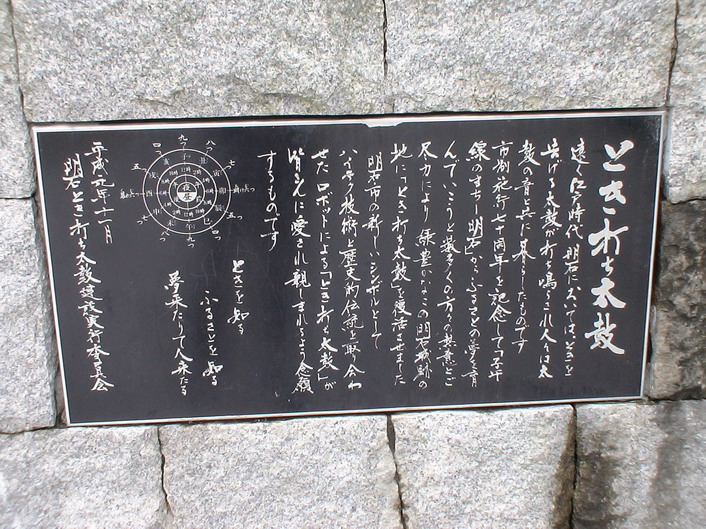 とき打ち太鼓
遠く江戸時代 明石においては、ときを
告げる太鼓が打ち鳴らされ人々は太
鼓の音と共に暮らしたものです
市制施行七十周年を記念して「子午
線のまち 明石」からふるさとの夢を育
んでいこうと数多くの方々の熱意とご
尽力により 緑豊かなこの明石城跡の
地に「とき打ち太鼓」を復活させました
明石市の新しいシンボルとして
ハイテク技術と歴史的伝統を取り合わ
せたロボットによる「とき打ち太鼓」が
皆さんに愛され親しまれるよう念願
するものです
ときを知る
ふるさとを知る
夢来たりて人来たる
平成元年十一月
明石とき打ち太鼓建設実行委員会